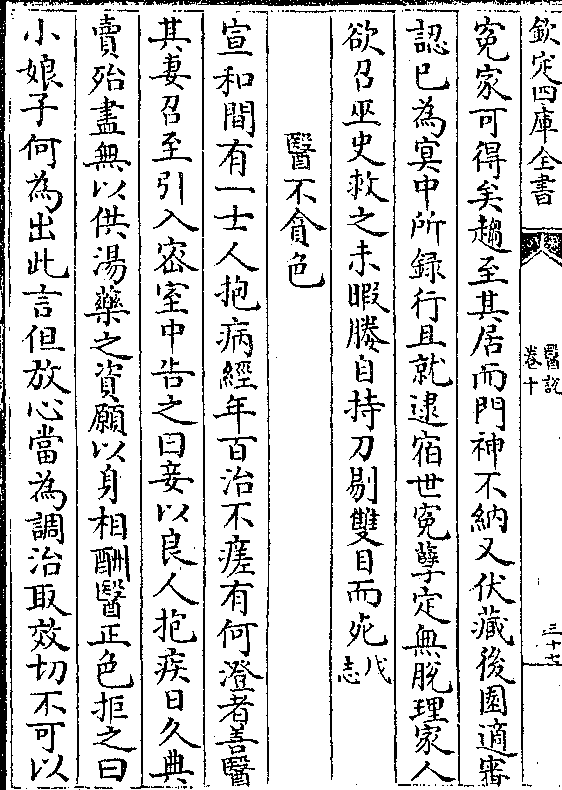 欽定四庫全書
醫說
卷十
三十七
冤家可得矣趨至其居而門神不納又伏藏後園適審
認已為冥中所録行且就逮宿世冤孽定無脫理家人
欲召巫史救之未暇勝自持刀剔雙目而死戊志
醫不貪色
宣和間有一士人抱病經年百治不瘥有何澄者善醫
其妻召至引入密室中告之曰妾以良人抱疾日久典
賣殆盡無以供湯藥之資願以身相酬醫正色拒之曰
小娘子何為出此言但放心當為調治取效切不可以